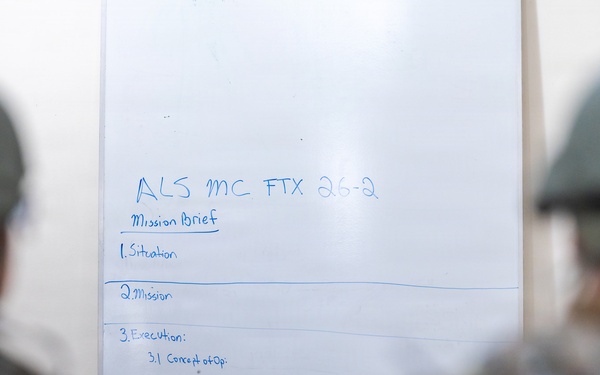 ALS MC FTX 26-2
Mission Brief
1. Situation
2. Mission
3. Execution:
3.1 Concept of Op: